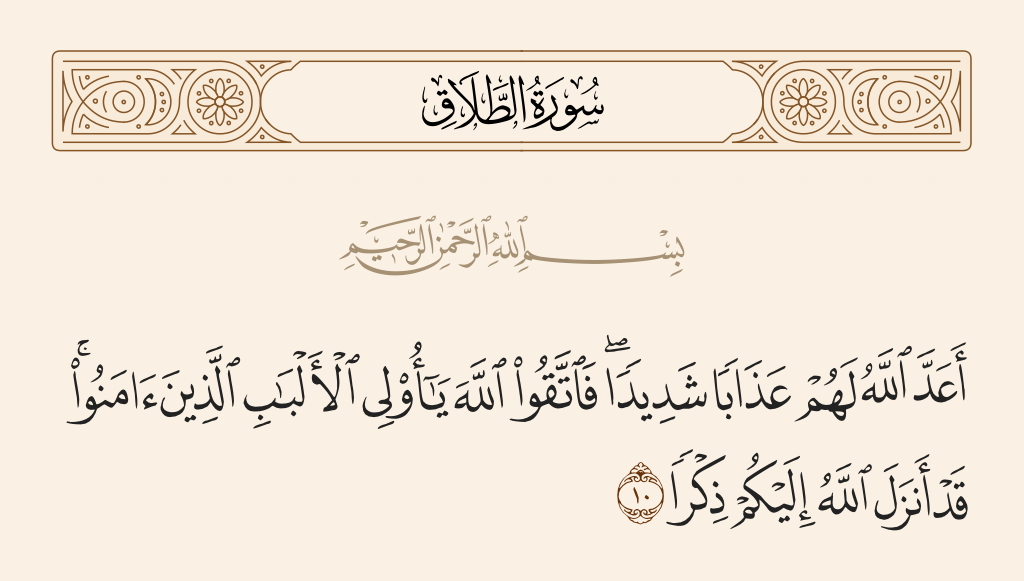 سُورَةُ الطَّلَاقِ
بِسْمِ ٱللَّهِ ٱلرَّحْمَٰنِ ٱلرَّحِيمِ
أَعَدَّ ٱللَّهُ لَهُمْ عَذَابًا شَدِيدًا ۖ فَٱتَّقُوا۟ ٱللَّهَ يَٰٓأُو۟لِى ٱلْأَلْبَٰبِ ٱلَّذِينَ ءَامَنُوا۟ ۚ
قَدْ أَنزَلَ ٱللَّهُ إِلَيْكُمْ ذِكْرًا ١٠